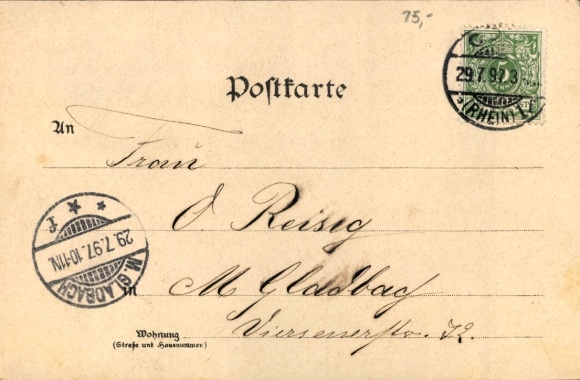 75,-
5
29.7.97.3
(RHEIN)
Postkarte
An
Frau
O. Reiseg
in M Gladbag
Viersenerstr. 72.
Wohnung
(Straße und Hausnummer.)
M. GLADBACH
29.7.97.10-11N.
* * f